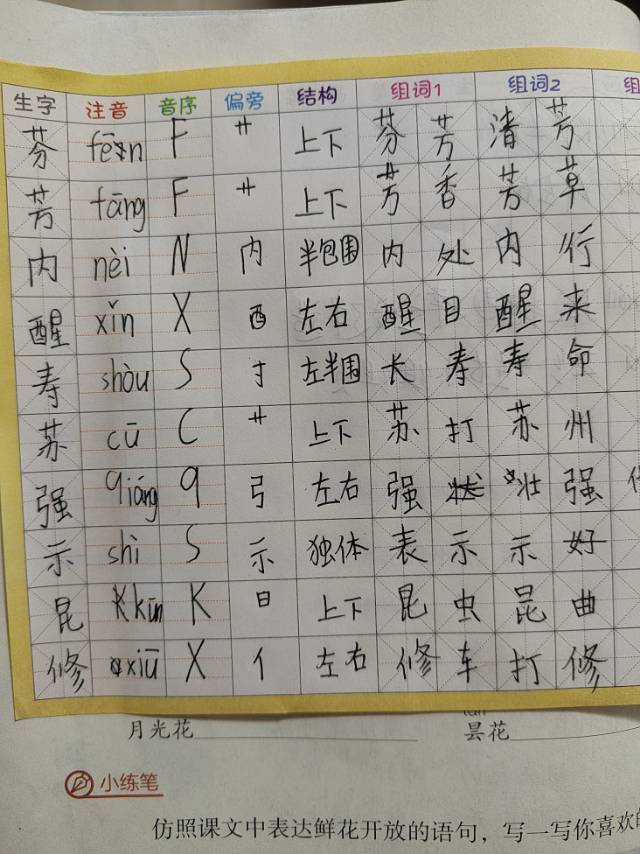 生字 注音 音序 偏旁 结构 组词1 组词2 组
芬 fēn F 艹 上下 芬芳 清芳
芳 fāng F 艹 上下 芳香 芳草
内 nèi N 内 半包围 内处 内行
醒 xǐn X 酉 左右 醒目 醒来
寿 shòu S 寸 左半围 长寿 寿命
苏 cū C 艹 上下 苏打 苏州
强 qiáng q 弓 左右 强状 壮强
示 shì S 示 独体 表示 示好
昆 kūn K 日 上下 昆虫 昆曲
修 xiū X 亻 左右 修车 打修
月光花 昙花
小练笔
仿照课文中表达鲜花开放的语句，写一写你喜欢的